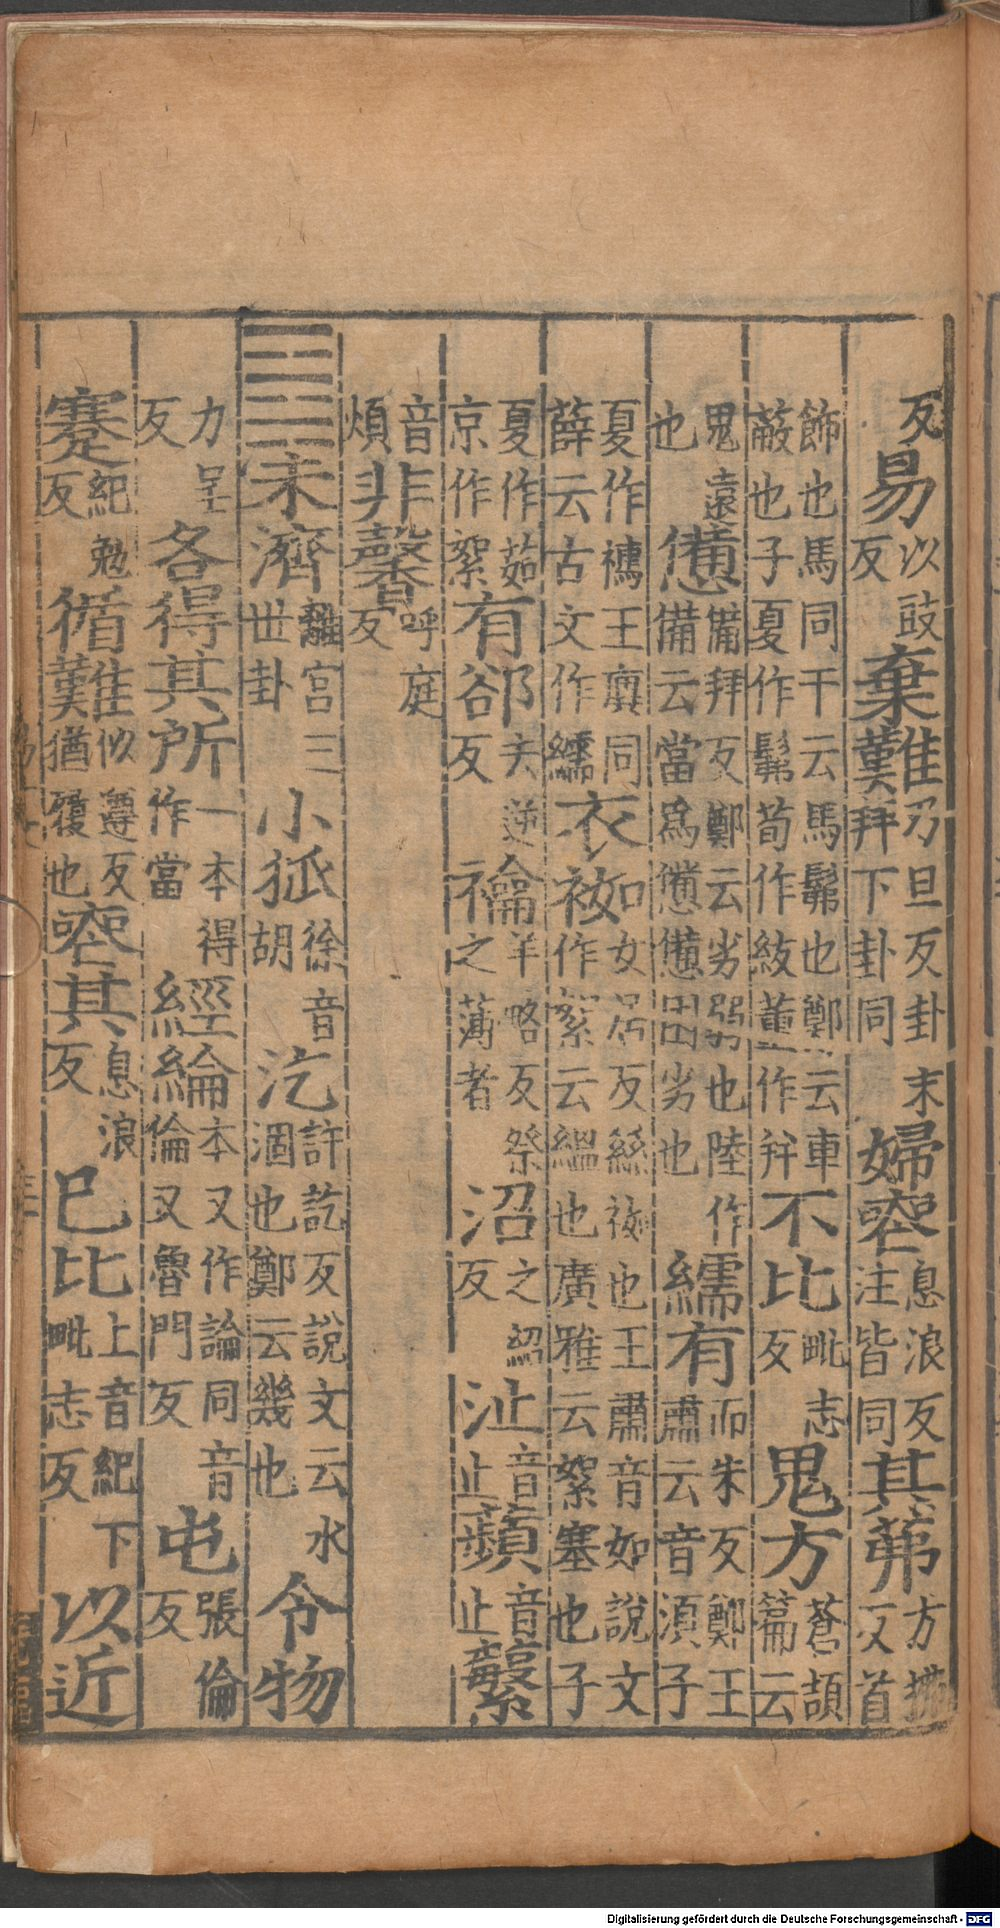 反易以豉反棄難乃旦反卦末拜下卦同婦喪息浪反注皆同其茀方拂反首
飾也馬同干云馬髴也鄭云車蔽也子夏作髴荀作紱董作不比毗志反鬼方蒼頡篇云
鬼遠也憊備拜反鄭云劣弱也陸作備云當爲憊憊困劣也繻有而朱反鄭王肅云音須子
夏作襦王廙同薛云古文作繻衣袽女居反絲袽也王肅音如說文作絮云縕也廣雅云絮塞也子
夏作茹京作絮有郤去逆反禴羊略反祭之薄者沼之紹反沚音止蘋音止蘩
音煩非馨呼庭反
䷿未濟離宮三世卦小狐徐音胡汔許訖反說文云水涸也鄭云幾也令物
力呈反各得其所一本得作當經綸本又作論同音倫又魯門反屯張倫反
蹇紀勉反循難似遵反猶履也喪其息浪反巳比上音紀下毗志反以近
Digitalisierung gefördert durch die Deutsche Forschungsgemeinschaft - DFG